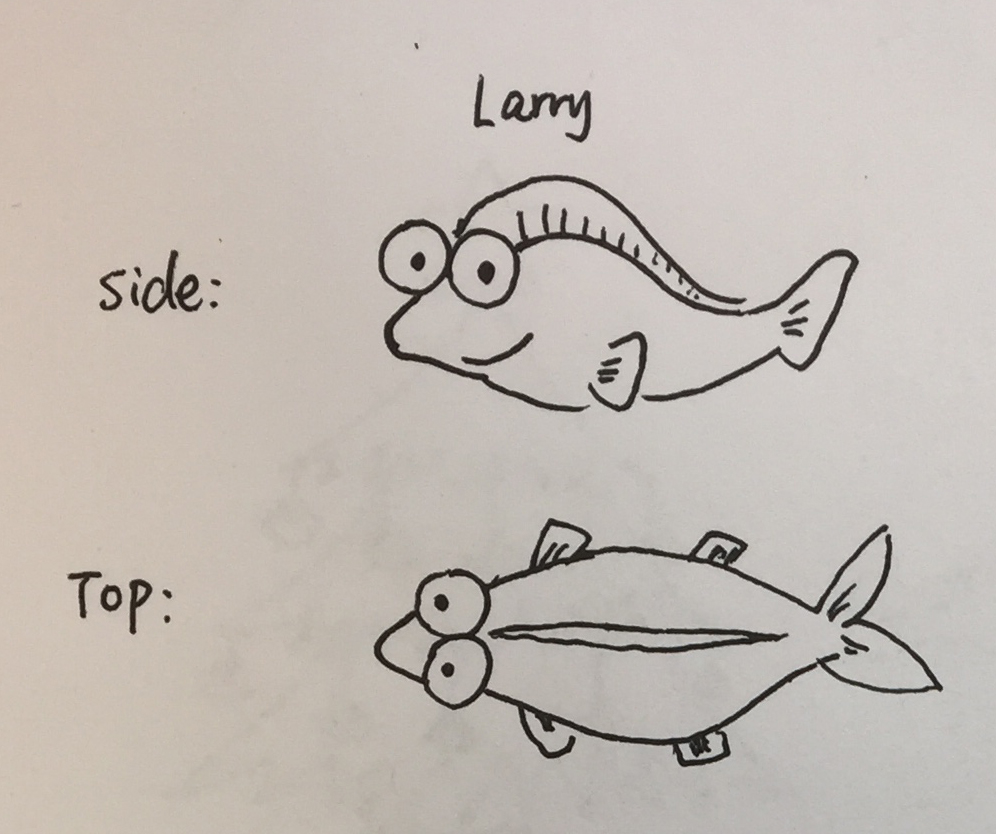 Larry
side:
Top: